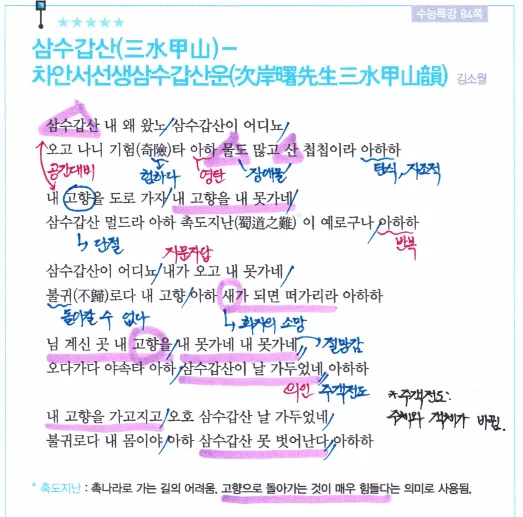 수능특강 84쪽
★★★★★
삼수갑산(三水甲山)-
차안서선생삼수갑산운(次岸曙先生三水甲山韻) 김소월
삼수갑산 내 왜 왔노/삼수갑산이 어디뇨/
오고 나니 기험(奇險)타 아하 물도 많고 산 첩첩이라 아하하
공간대비 험하다 영탄 장애물 탄식, 자조적
내 고향을 도로 가자/내 고향을 내 못가네/
삼수갑산 멀드라 아하 촉도지난(蜀道之難) 이 예로구나/아하하
↳ 단절 자문자답 반복
삼수갑산이 어디뇨/내가 오고 내 못가네/
불귀(不歸)로다 내 고향/아하 새가 되면 떠가리라 아하하
돌아갈 수 없다 ↳ 화자의 소망
님 계신 곳 내 고향을/내 못가네 내 못가네/ 절망감
오다가다 야속타 아하/삼수갑산이 날 가두었네/아하하
의인 주객전도
*주객전도:
내 고향을 가고지고/오호 삼수갑산 날 가두었네/
주체와 객체가 바뀜.
불귀로다 내 몸이야/아하 삼수갑산 못 벗어난다/아하하
* 촉도지난 : 촉나라로 가는 길의 어려움. 고향으로 돌아가는 것이 매우 힘들다는 의미로 사용됨.